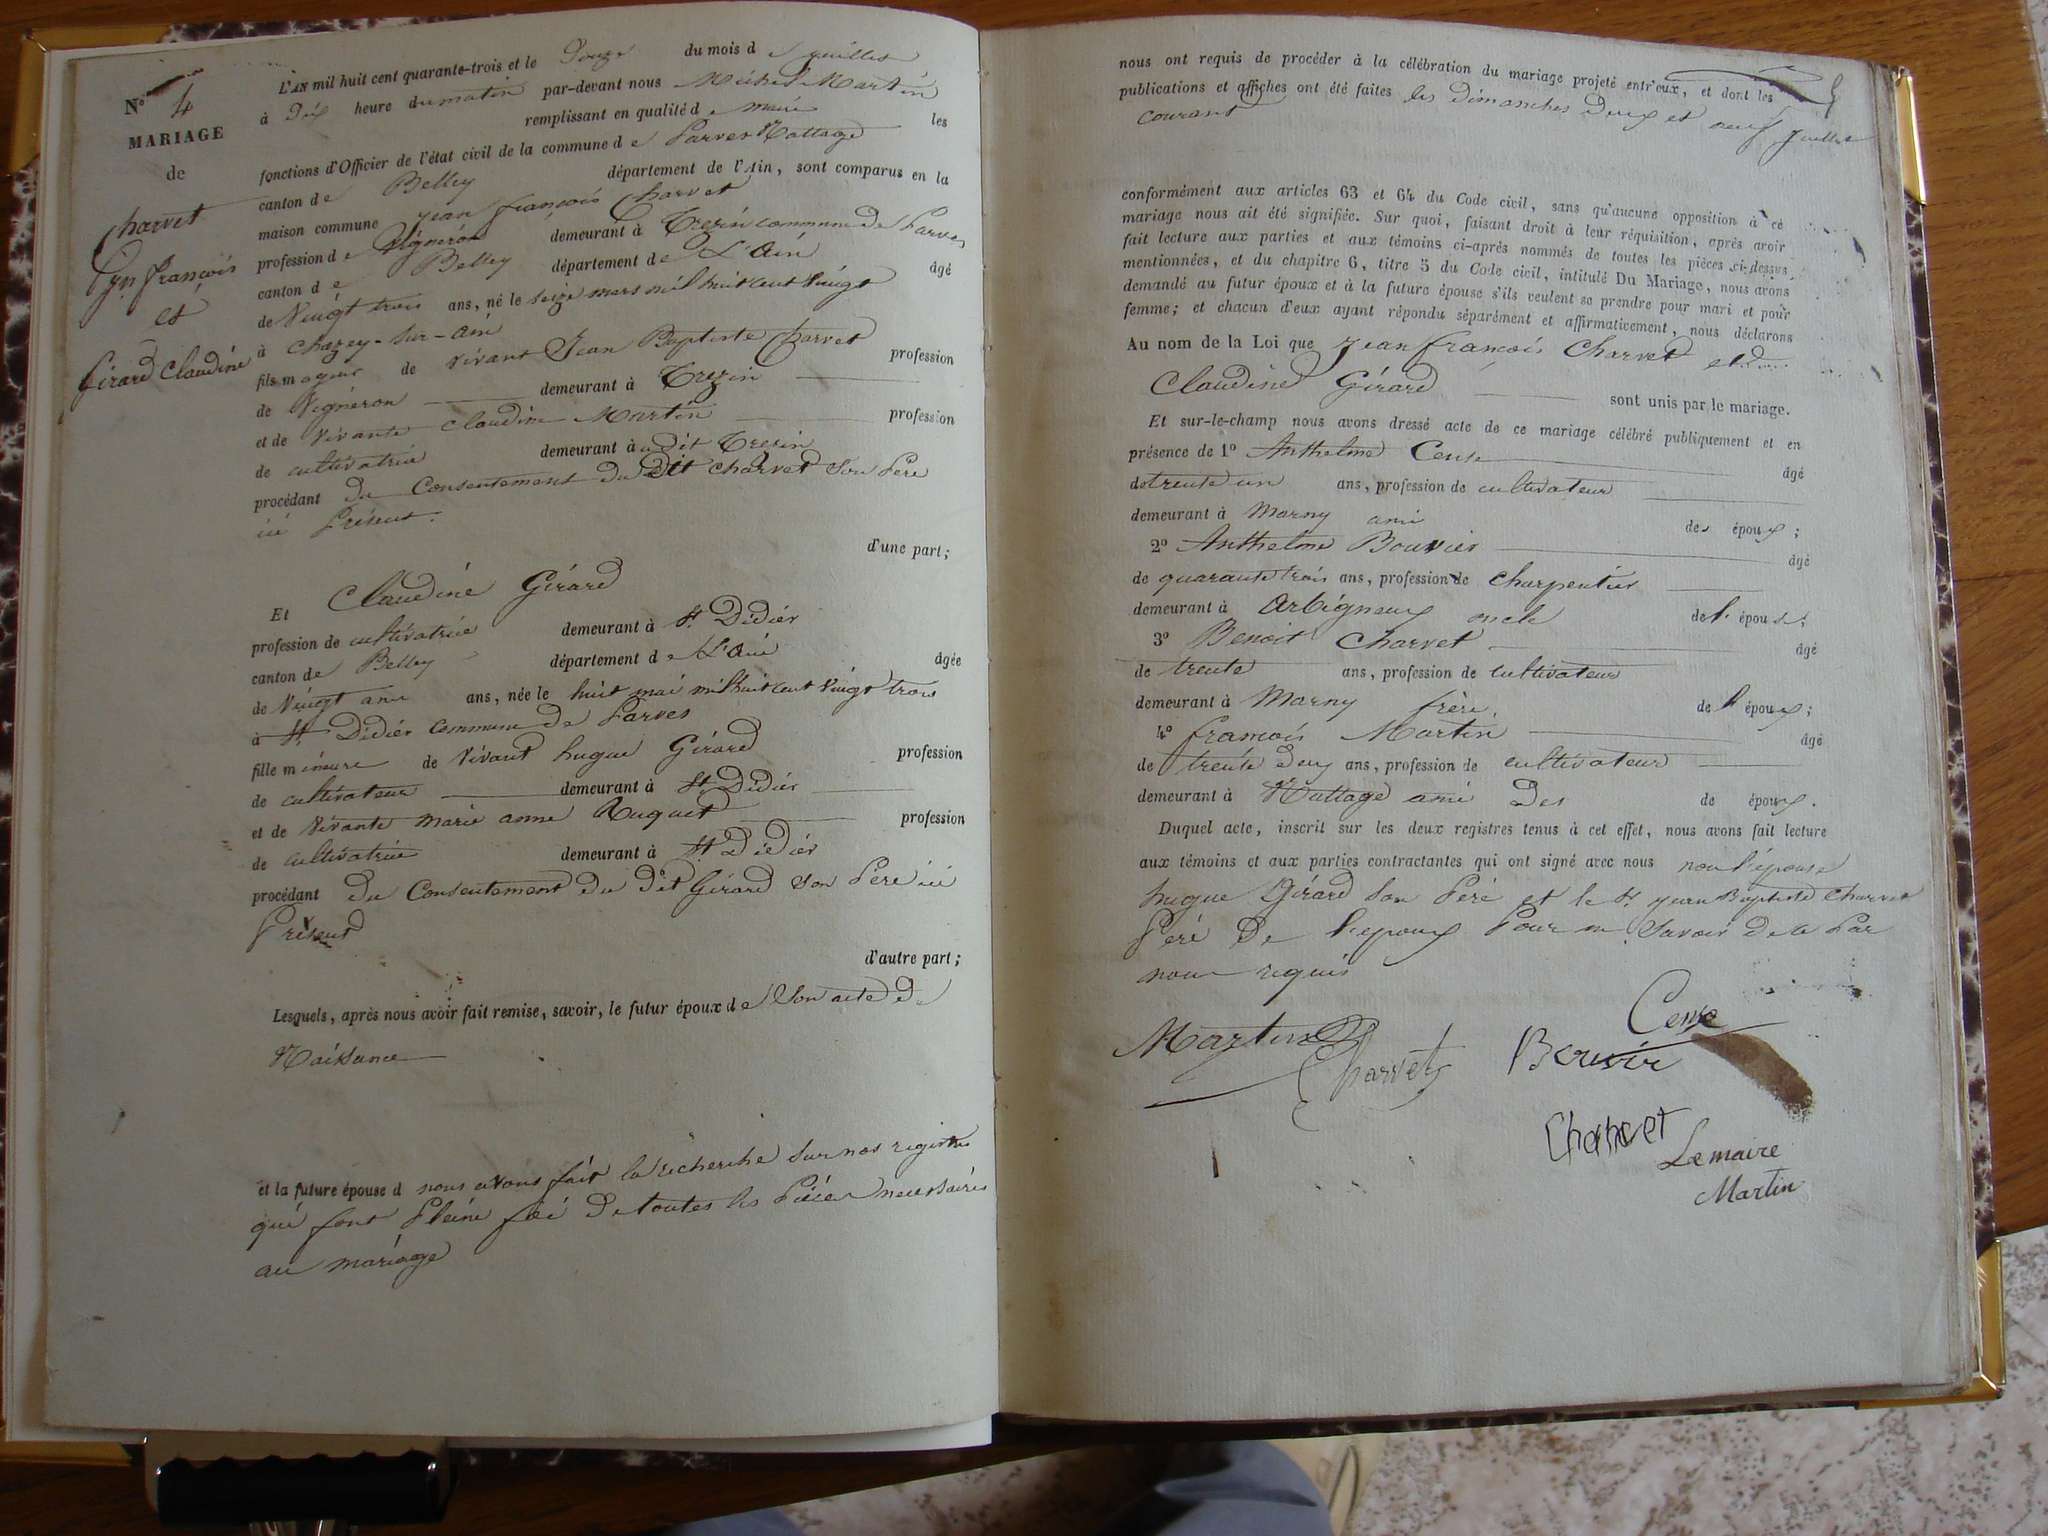 N° 4
MARIAGE
de
Charvet
Jn françois
et
Girard Claudine
L'AN mil huit cent quarante-trois et le Douze du mois de juillet
à Dix heure du matin par-devant nous Michel Martin
remplissant en qualité de maire les
fonctions d'Officier de l'état civil de la commune de Parves Nattage
canton de Belley département de l'Ain, sont comparus en la
maison commune jean françois Charvet
profession de Vigneron demeurant à Trezin commune de Parves
canton de Belley département de L'Ain âgé
de Vingt trois ans, né le seize mars mil huit cent Vingt
à Chazey-sur-ain
fils mageur de vivant Jean Baptiste Charvet profession
de Vigneron demeurant à Trezin
et de vivante Claudine Martin profession
de cultivatrice demeurant à u dit Trezin
procédant du Consentement du Dit Charvet son Père
ici Présent.
d'une part;
Et Claudine Girard
profession de cultivatrice demeurant à St Didier
canton de Belley département de L'Ain âgée
de Vingt ans, née le huit mai mil huit cent vingt trois
à St Didier commune de Parves
fille mineure de vivant hugue Girard profession
de cultivateur demeurant à St Didier
et de vivante marie anne Ruguet profession
de cultivatrice demeurant à St Didier
procédant du Consentement du dit Girard son Père ici
Présent
d'autre part;
Lesquels, après nous avoir fait remise, savoir, le futur époux de Son acte de
Naissance
et la future épouse d nous avons fait la recherche sur nos registres
qui font Pleine foi de toutes les Pièces necessaires
au mariage
nous ont requis de procéder à la célébration du mariage projeté entr'eux, et dont les
publications et affiches ont été faites les dimanches Deux et neuf juillet
courant
conformément aux articles 63 et 64 du Code civil, sans qu'aucune opposition à ce
mariage nous ait été signifiée. Sur quoi, faisant droit à leur réquisition, après avoir
fait lecture aux parties et aux témoins ci-après nommés de toutes les pièces ci-dessus
mentionnées, et du chapitre 6, titre 5 du Code civil, intitulé Du Mariage, nous avons
demandé au futur époux et à la future épouse s'ils veulent se prendre pour mari et pour
femme; et chacun d'eux ayant répondu séparément et affirmativement, nous déclarons
Au nom de la Loi que jean françois Charvet et
Claudine Girard sont unis par le mariage.
Et sur-le-champ nous avons dressé acte de ce mariage célébré publiquement et en
présence de 1° Anthelme Cense âgé
de trente un ans, profession de cultivateur
demeurant à Marny ami des époux;
2° Anthelme Bouvier âgé
de quarante trois ans, profession de Charpentier
demeurant à Arbigneux oncle de l'épouse;
3° Benoit Charvet âgé
de trente ans, profession de cultivateur
demeurant à Marny frère de l'époux;
4° francois Martin âgé
de trente deux ans, profession de cultivateur
demeurant à Nattage ami Des de époux.
Duquel acte, inscrit sur les deux registres tenus à cet effet, nous avons fait lecture
aux témoins et aux parties contractantes qui ont signé avec nous non l'épouse
hugue Girard son Père et le Sr jean Baptiste Charvet
Père De l'epoux Pour ne Savoir de ce Par
nous requis
Cense
Martin
Charvet
Bouvier
Charvet
Lemaire
Martin